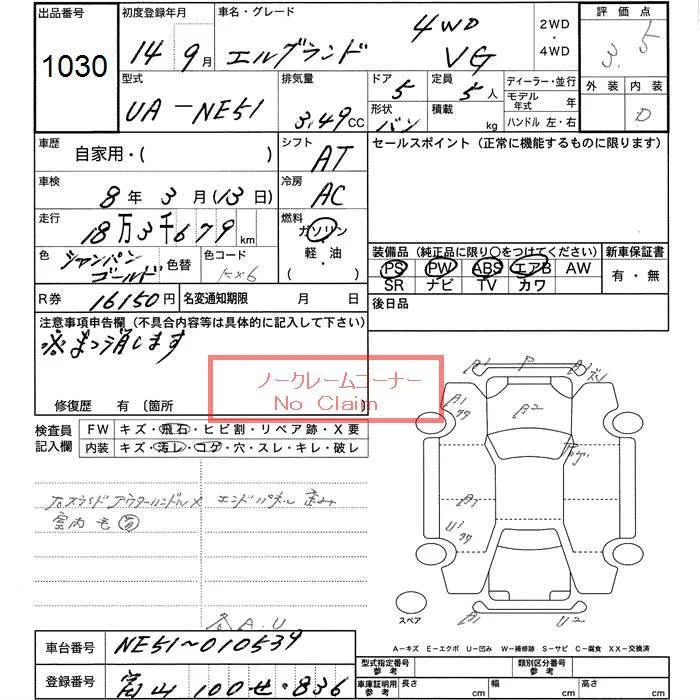 出品番号 1030
初度登録年月 14年 9月
車名・グレード エルグランド 4WD VG
2WD・4WD
評価点 3.5
外装 内装 D
型式 UA-NE51
排気量 3.49 CC
ドア 5
定員 5人
形状 バン
積載 kg
ディーラー・並行
モデル年式 年
ハンドル 左・右
車歴 自家用・( )
シフト AT
セールスポイント (正常に機能するものに限ります)
車検 8年 3月 (13日)
冷房 AC
走行 18万3千679 km
燃料 ガソリン・軽・油 ( )
色 シャンパンゴールド 色替
色コード KX6
装備品 (純正品に限り○をつけてください) 新車保証書
PS PW ABS エアB AW 有・無
SR ナビ TV カワ
R券 16150円 名変通知期限 月 日
後日品
注意事項申告欄 (不具合内容等は具体的に記入して下さい)
ノークレームコーナー
No Claim
修復歴 有 〔箇所
検査員記入欄
FW キズ・飛石・ヒビ割・リペア跡・X要
内装 キズ・汚レ・コゲ・穴・スレ・キレ・破レ
エンドパネル歪み
室内毛有
各A.U
A1 P A1
A1 A2
A1
U1
A1 U2
スペア
A-キズ E-エクボ U-凹み W-補修跡 S-サビ C-腐食 XX-交換済
車台番号 NE51~010539
登録番号 富山 100 せ 836
型式指定番号 参考 類別区分番号 参考
車庫証明用 参考 長さ cm 幅 cm 高さ cm